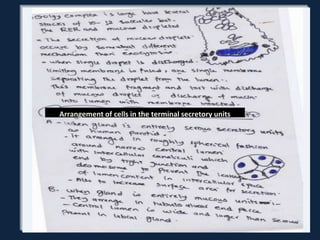 - Golgi complex is large have several
stacks of 10-12 saccules bet.
the RER and mucous droplets
- The secretion of mucous droplets
occure by somewhat different
mechanism than exocytosis
- when single droplet is discharged.
limiting membrane is fused one single membrane
separating the droplet from the lumen.
this membrane fragment and lost with discharge
of mucous droplet or discharge of mucin
into lumen with membrane intacted.
Arrangement of cells in the terminal secretory units
A - when gland is entirely serous secretory units
as human parotid.
- it arranged in roughly spherical fashion
around narrow central lumen
with intercellular canaliculi which
end by tight junction and
desmosome to prevent the leakage
of lumen content in intercellular space
- Also to increase surface area for secretion.
B - when gland is entirely mucous units :-
- They arrange in tubular blind end piece
- central lumen is wide and larger than serous
present in labial gland.